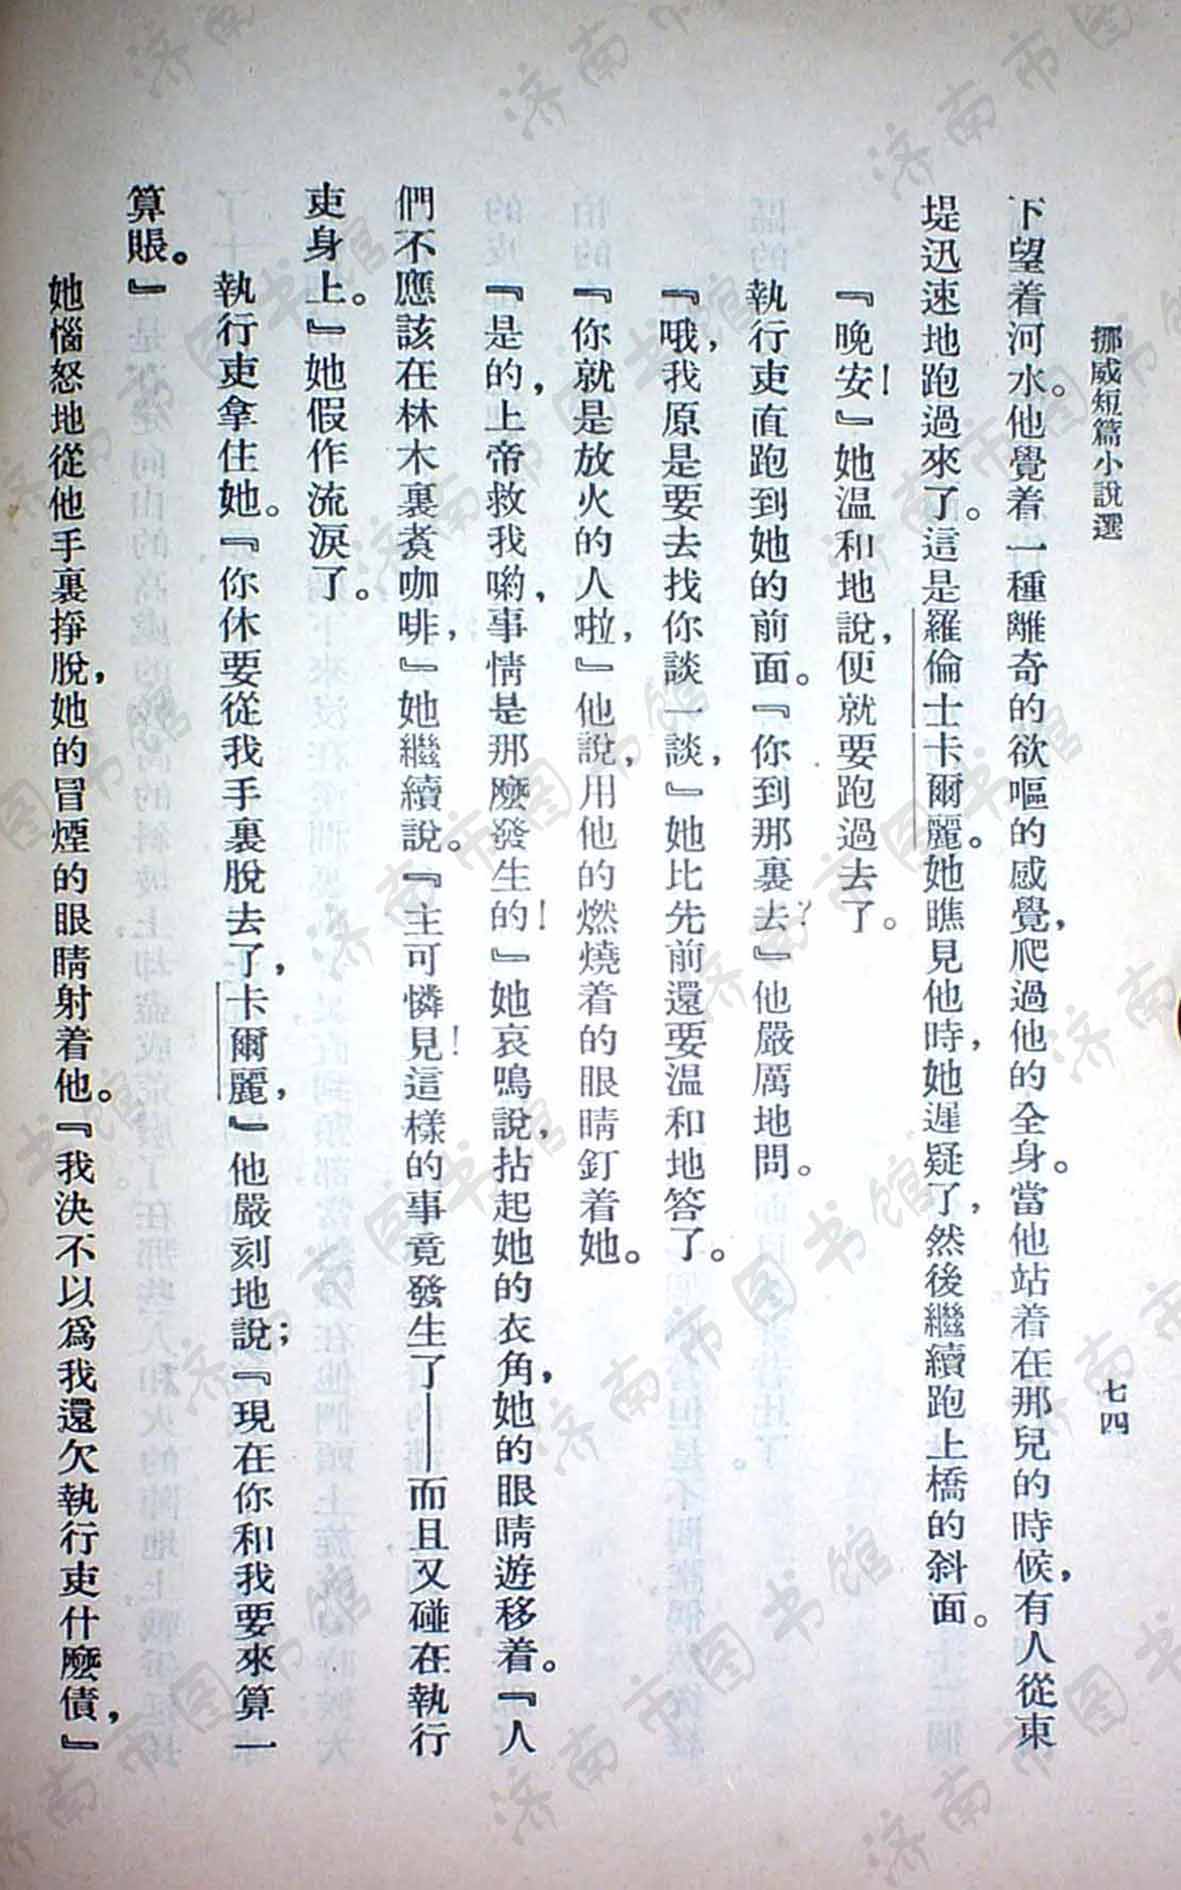 挪威短篇小說選
七四
下望着河水。他覺着一種離奇的欲嘔的感覺，爬過他的全身。當他站着在那兒的時候，有人從東
堤迅速地跑過來了。這是羅倫士卡爾麗。她瞧見他時，她遲疑了，然後繼續跑上橋的斜面。
『晚安！』她温和地說，便就要跑過去了。
執行吏直跑到她的前面。『你到那裏去？』他嚴厲地問。
『哦，我原是要去找你談一談，』她比先前還要温和地答了。
『你就是放火的人啦，』他說，用他的燃燒着的眼睛釘着她。
『是的，上帝救我喲，事情是那麼發生的！』她哀鳴說，拈起她的衣角，她的眼睛遊移着。『人
們不應該在林木裏煑咖啡，』她繼續說。『主可憐見！這樣的事竟發生了——而且又碰在執行
吏身上。』她假作流淚了。
執行吏拿住她。『你休要從我手裏脫去了，卡爾麗，』他嚴刻地說；『現在你和我要來算一
算賬。』
她惱怒地從他手裏掙脫，她的冒煙的眼睛射着他。『我決不以爲我還欠執行吏什麼債，』
济南市图书馆